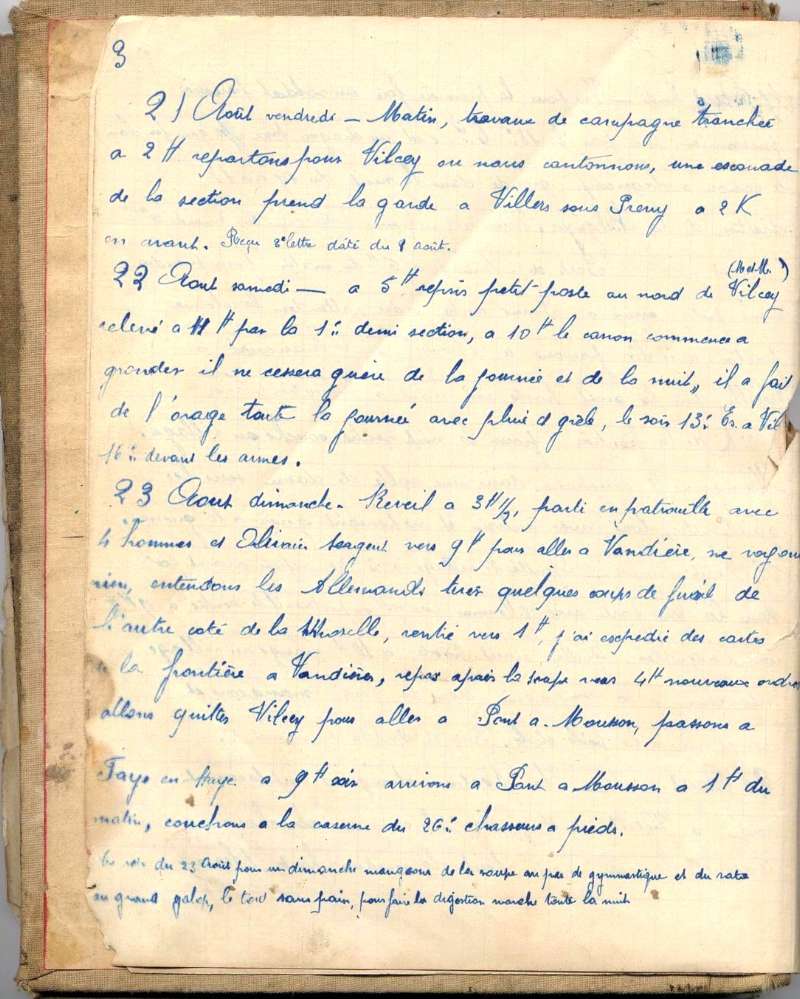 3
21 Août vendredi — Matin, travaux de campagne tranchée
a 2H repartons pour Vilcey ou nous cantonnons, une escouade
de la section prend la garde a Villers sous Preny a 2 K
en avant. Reçu 2e lettre daté du 9 août.
(M et M.)
22 Aout samedi — a 5H repris petit poste au nord de Vilcey
relevé a 11H par la 1è demi section, a 10H le canon commence a
gronder il ne cessera guère de la journée et de la nuit, il a fait
de l'orage toute la journée avec pluie d grèle, le soir 13è Es. a Vil
16è devant les armes.
23 Aout dimanche - Reveil a 3H 1/2, parti en patrouille avec
4 hommes et sergent vers 9H pour aller a Vandière, ne voyons
rien, entendons les Allemands tirer quelques coups de fusil de
l'autre coté de la Moselle, rentré vers 1H, j'ai expedié des cartes
a la frontière a Vandières, repos après la soupe vers 4H nouveaux ordres
allons quitter Vilcey pour aller a Pont a-Mousson, passons a
Fays en-Haye a 9H soir arrivons a Pont a Mousson a 1H du
matin, couchons a la caserne du 26è chasseurs a pieds.
Le soir du 23 Août pour un dimanche mangeons de la soupe au pas de gymnastique et du rata
au grand galop, le tout sans pain, pour faire la digestion marche toute la nuit